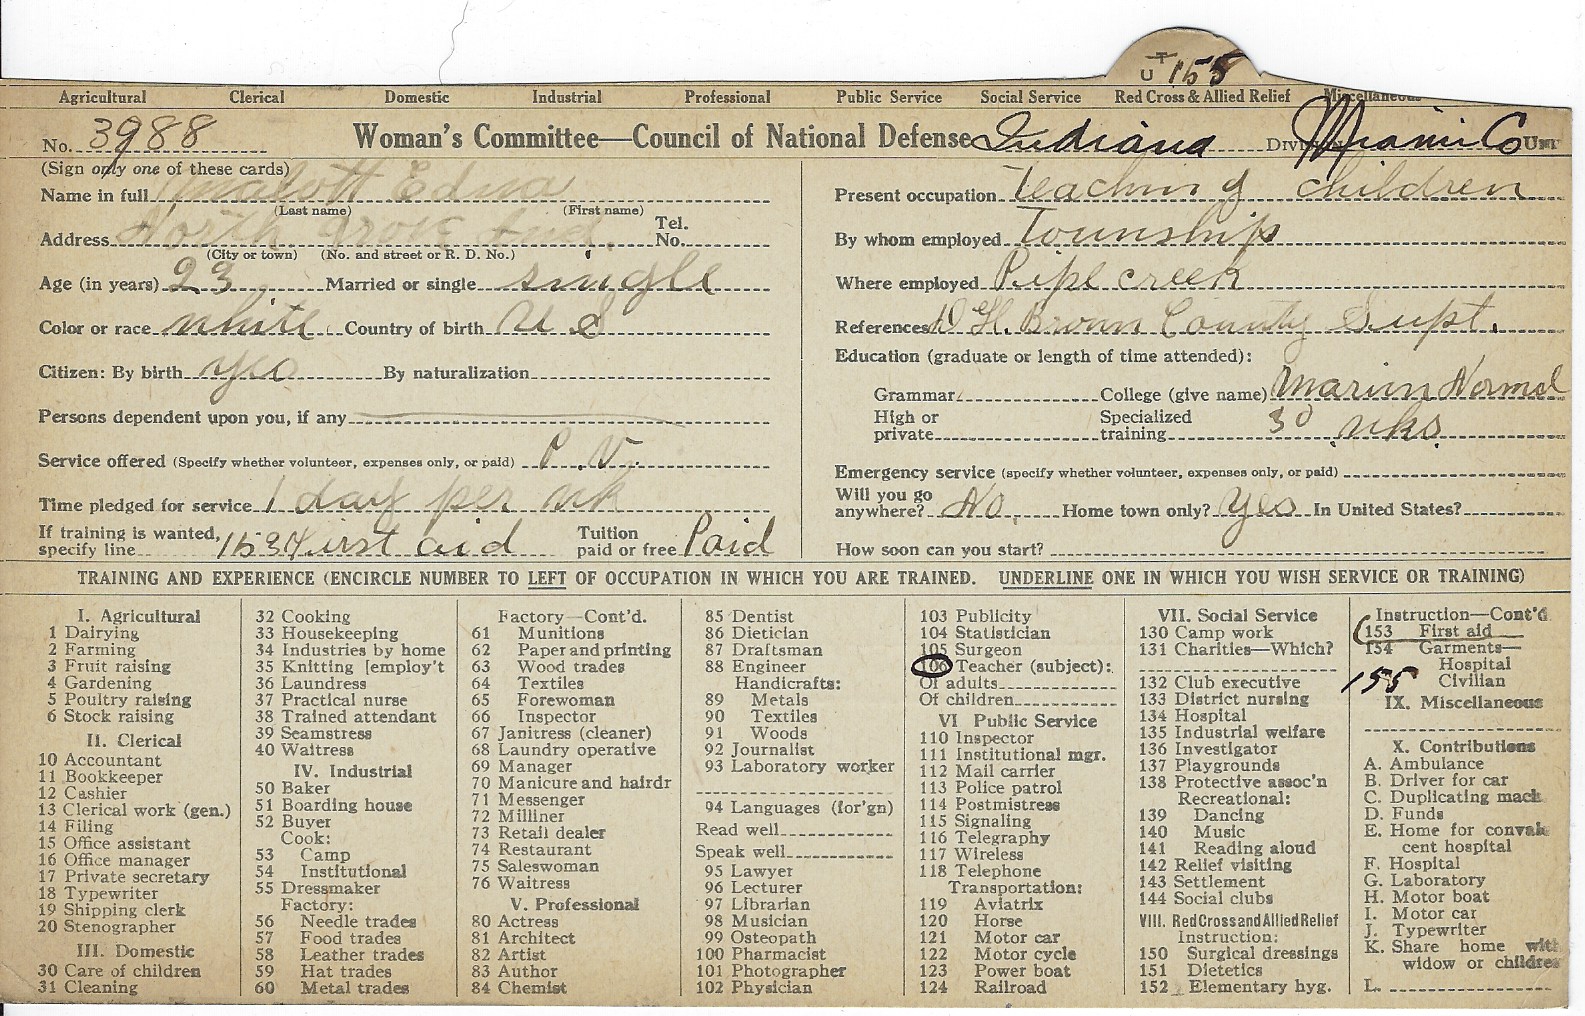 U T 155
Agricultural Clerical Domestic Industrial Professional Public Service Social Service Red Cross & Allied Relief Miscellaneous
No. 3988 Woman's Committee—Council of National Defense Indiana Division Miami Co Unit
(Sign only one of these cards)
Name in full Malott Edna
(Last name) (First name)
Address North Grove Ind. Tel. No.
(City or town) (No. and street or R. D. No.)
Age (in years) 23 Married or single single
Color or race white Country of birth U S
Citizen: By birth yes By naturalization
Persons dependent upon you, if any
Service offered (Specify whether volunteer, expenses only, or paid) P. V.
Time pledged for service 1 day per wk
If training is wanted, specify line 153 First aid Tuition paid or free Paid
Present occupation Teaching children
By whom employed Township
Where employed Pipe creek
References Brown County Supt.
Education (graduate or length of time attended):
Grammar College (give name) Marion Normal
High or private Specialized training 30 wks
Emergency service (specify whether volunteer, expenses only, or paid)
Will you go anywhere? No. Home town only? Yes In United States?
How soon can you start?
TRAINING AND EXPERIENCE (ENCIRCLE NUMBER TO LEFT OF OCCUPATION IN WHICH YOU ARE TRAINED. UNDERLINE ONE IN WHICH YOU WISH SERVICE OR TRAINING)
I. Agricultural
1 Dairying
2 Farming
3 Fruit raising
4 Gardening
5 Poultry raising
6 Stock raising
II. Clerical
10 Accountant
11 Bookkeeper
12 Cashier
13 Clerical work (gen.)
14 Filing
15 Office assistant
16 Office manager
17 Private secretary
18 Typewriter
19 Shipping clerk
20 Stenographer
III. Domestic
30 Care of children
31 Cleaning
32 Cooking
33 Housekeeping
34 Industries by home
35 Knitting [employ't
36 Laundress
37 Practical nurse
38 Trained attendant
39 Seamstress
40 Waitress
IV. Industrial
50 Baker
51 Boarding house
52 Buyer
Cook:
53 Camp
54 Institutional
55 Dressmaker
Factory:
56 Needle trades
57 Food trades
58 Leather trades
59 Hat trades
60 Metal trades
Factory—Cont'd.
61 Munitions
62 Paper and printing
63 Wood trades
64 Textiles
65 Forewoman
66 Inspector
67 Janitress (cleaner)
68 Laundry operative
69 Manager
70 Manicure and hairdr
71 Messenger
72 Milliner
73 Retail dealer
74 Restaurant
75 Saleswoman
76 Waitress
V. Professional
80 Actress
81 Architect
82 Artist
83 Author
84 Chemist
85 Dentist
86 Dietician
87 Draftsman
88 Engineer
Handicrafts:
89 Metals
90 Textiles
91 Woods
92 Journalist
93 Laboratory worker
94 Languages (for'gn)
Read well
Speak well
95 Lawyer
96 Lecturer
97 Librarian
98 Musician
99 Osteopath
100 Pharmacist
101 Photographer
102 Physician
103 Publicity
104 Statistician
105 Surgeon
106 Teacher (subject):
Of adults
Of children
VI Public Service
110 Inspector
111 Institutional mgr.
112 Mail carrier
113 Police patrol
114 Postmistress
115 Signaling
116 Telegraphy
117 Wireless
118 Telephone
Transportation:
119 Aviatrix
120 Horse
121 Motor car
122 Motor cycle
123 Power boat
124 Railroad
VII. Social Service
130 Camp work
131 Charities—Which?
132 Club executive
133 District nursing
134 Hospital
135 Industrial welfare
136 Investigator
137 Playgrounds
138 Protective assoc'n
Recreational:
139 Dancing
140 Music
141 Reading aloud
142 Relief visiting
143 Settlement
144 Social clubs
VIII. Red Cross and Allied Relief
Instruction:
150 Surgical dressings
151 Dietetics
152 Elementary hyg.
Instruction—Cont'd
153 First aid
154 Garments—
Hospital
155 Civilian
IX. Miscellaneous
X. Contributions
A. Ambulance
B. Driver for car
C. Duplicating mach
D. Funds
E. Home for convales
cent hospital
F. Hospital
G. Laboratory
H. Motor boat
I. Motor car
J. Typewriter
K. Share home with
widow or children
L.